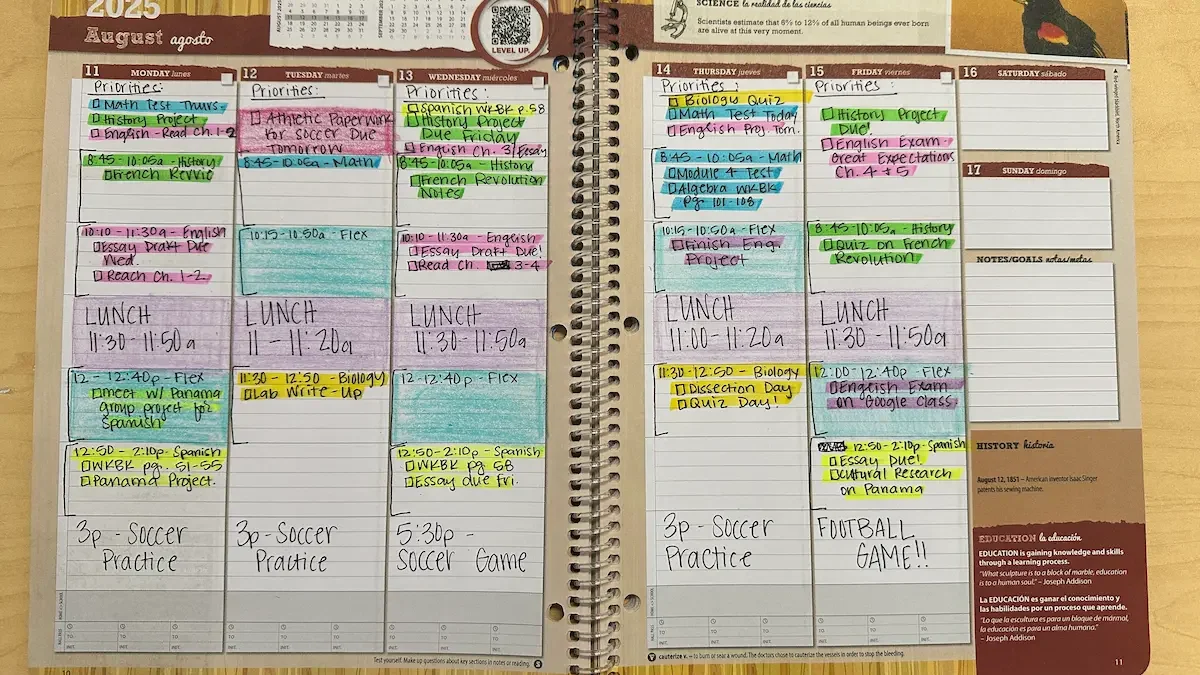 2025
August agosto
LEVEL UP.
SCIENCE la realidad de las ciencias
Scientists estimate that 6% to 12% of all human beings ever born
are alive at this very moment.
11 MONDAY lunes
Priorities:
Math Test Thurs.
History Project
English - Read Ch. 1-2
8:45 - 10:05a - History
French Revvie
10:10 - 11:30a - English
Essay Draft Due
Wed.
Reach Ch. 1-2
LUNCH
11:30 - 11:50a
12 - 12:40p - Flex
meet w/ Panama
group project for
Spanish
12:50 - 2:10p - Spanish
WKBK pg. 51-55
Panama Project.
3p - Soccer
Practice
12 TUESDAY martes
Priorities:
Athletic Paperwork
for soccer Due
Tomorrow
8:45 - 10:05a - Math
10:15 - 10:50a - Flex
LUNCH
11 - 11:20a
11:30 - 12:50 - Biology
Lab Write-Up
3p - Soccer
Practice
13 WEDNESDAY miércoles
Priorities:
Spanish WKBK p.58
History Project
Due Friday
English Ch. 3/Essay
8:45 - 10:05a - History
French Revolution
Notes
10:10 - 11:30a - English
Essay Draft Due!
Read Ch. 3-4
LUNCH
11:30 - 11:50a
12 - 12:40p - Flex
12:50 - 2:10p - Spanish
WKBK pg 58
Essay due Fri.
5:30p -
Soccer Game
Test yourself. Make up questions about key sections in notes or reading.
14 THURSDAY jueves
Priorities:
Biology Quiz
Math Test Today
English Proj. Tom.
8:45 - 10:05a - Math
Module 4 Test
Algebra WKBK
pg. 101-108
10:15 - 10:50a - Flex
Finish Eng.
Project
LUNCH
11:00 - 11:20a
11:30 - 12:50 - Biology
Dissection Day
Quiz Day!
3p - Soccer
Practice
15 FRIDAY viernes
Priorities:
History Project
Due!
English Exam -
Great Expectations
Ch. 4 + 5
8:45 - 10:05a - History
Quiz on French
Revolution
LUNCH
11:30 - 11:50a
12:00 - 12:40p - Flex
English Exam
on Google Class
12:50 - 2:10p - Spanish
Essay Due!
Cultural Research
on Panama
FOOTBALL
GAME!!
cauterize v. – to burn or sear a wound. The doctors chose to cauterize the vessels in order to stop the bleeding.
16 SATURDAY sábado
17 SUNDAY domingo
NOTES/GOALS notas/metas
HISTORY historia
August 12, 1851 – American inventor Isaac Singer
patents his sewing machine.
EDUCATION la educación
EDUCATION is gaining knowledge and skills
through a learning process.
"What sculpture is to a block of marble, education
is to a human soul." – Joseph Addison
La EDUCACIÓN es ganar el conocimiento y
las habilidades por un proceso que aprende.
"Lo que la escultura es para un bloque de mármol,
la educación es para un alma humana."
– Joseph Addison
11